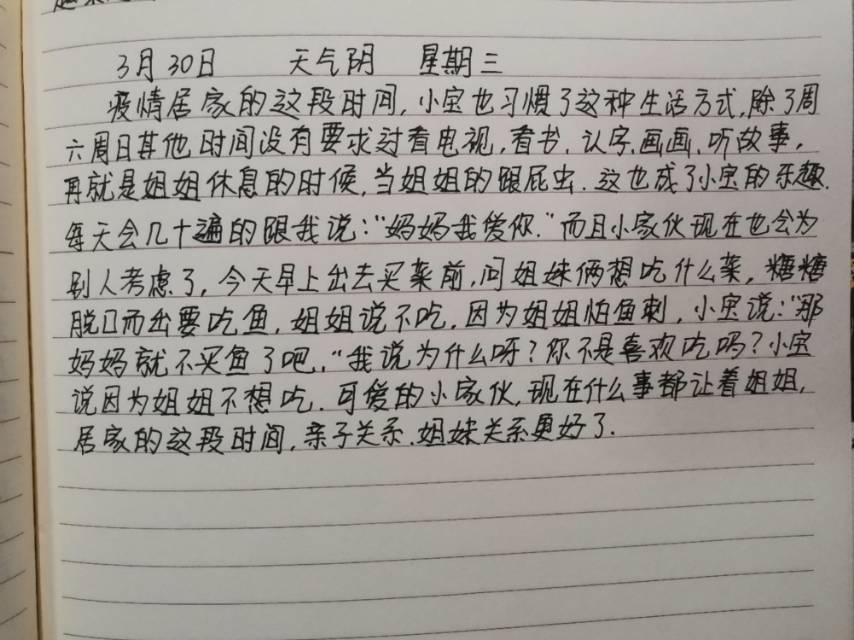 3月30日 天气阴 星期三
疫情居家的这段时间,小宝也习惯了这种生活方式,除了周
六周日其他时间没有要求过看电视,看书.认字.画画.听故事,
再就是姐姐休息的时候,当姐姐的跟屁虫.这也成了小宝的乐趣.
每天会几十遍的跟我说:“妈妈我爱你.”而且小家伙现在也会为
别人考虑了,今天早上出去买菜前,问姐妹俩想吃什么菜,糖糖
脱口而出要吃鱼,姐姐说不吃,因为姐姐怕鱼刺,小宝说:“那
妈妈就不买鱼了吧,“我说为什么呀?你不是喜欢吃吗?小宝
说因为姐姐不想吃.可爱的小家伙,现在什么事都让着姐姐,
居家的这段时间,亲子关系.姐妹关系更好了.